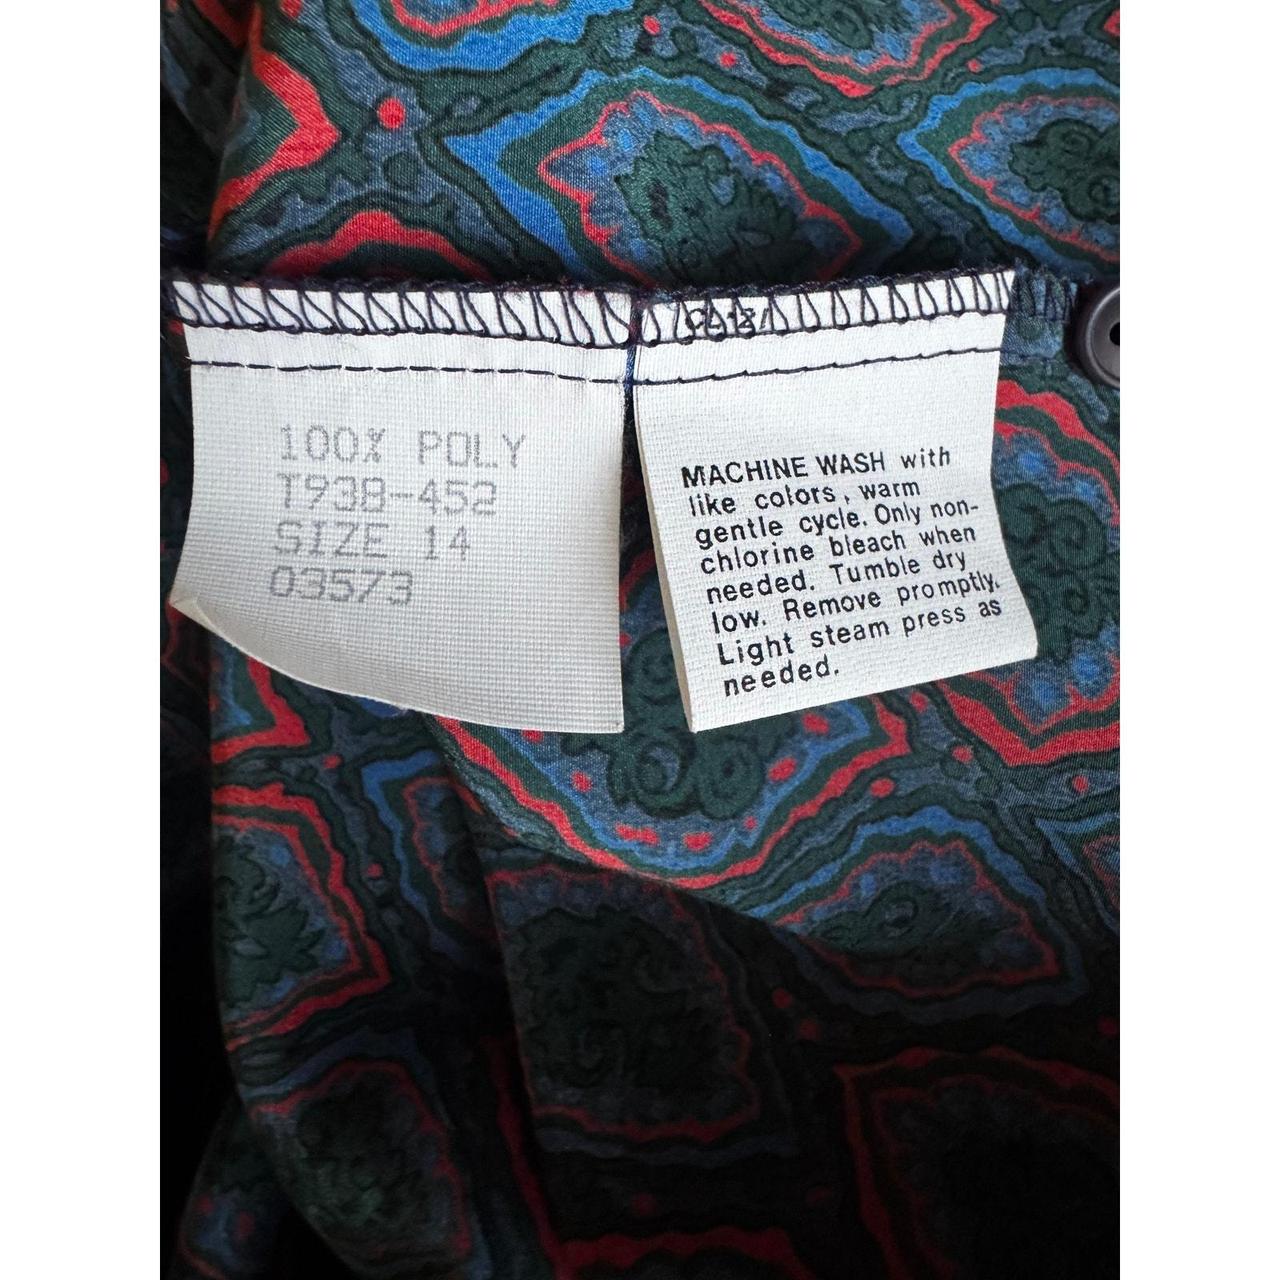 100% POLY
T938-452
SIZE 14
03573
MACHINE WASH with
like colors, warm
gentle cycle. Only non-
chlorine bleach when
needed. Tumble dry
low. Remove promptly.
Light steam press as
needed.